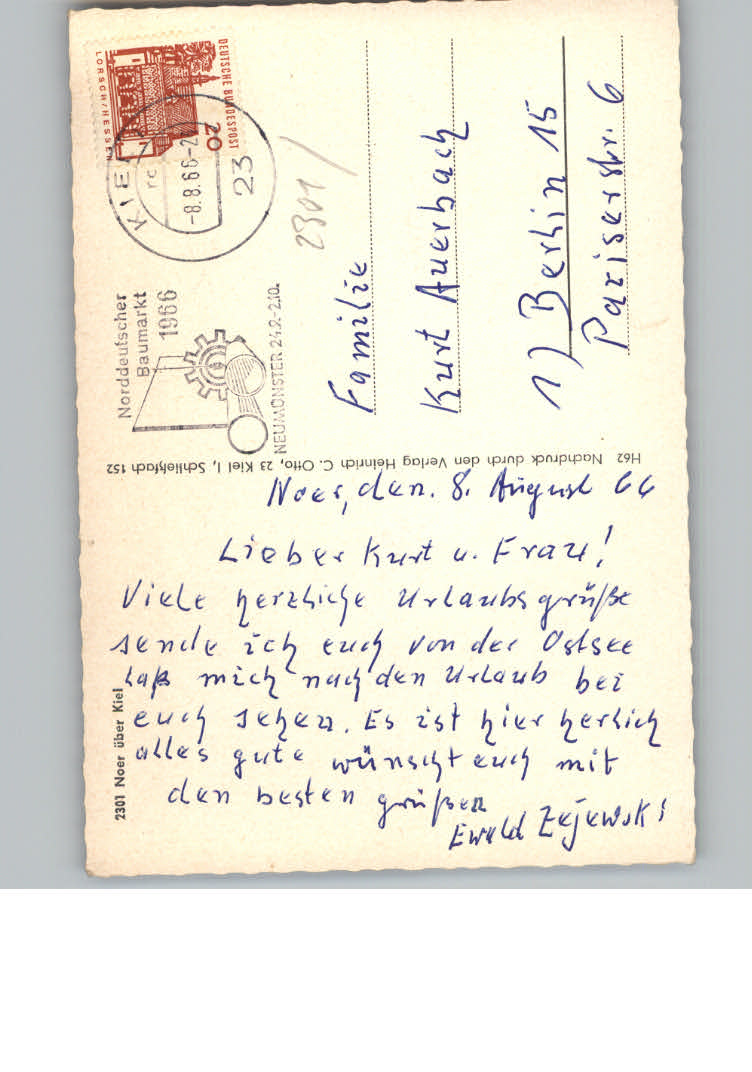 DEUTSCHE BUNDESPOST
20
LORSCH/HESSEN
KIEL
-8.8.66-2
23
2301
Norddeutscher
Baumarkt
1966
NEUMÜNSTER 24.9.-2.10.
Familie
Kurt Auerbach
1) Berlin 15
Pariserstr. 6
H62 Nachdruck durch den Verlag Heinrich C. Otto, 23 Kiel 1, Schließfach 152
Noer, den. 8. August 66
Lieber Kurt u. Frau!
Viele herzliche Urlaubsgrüße
sende ich euch von der Ostsee
laß mich nach den Urlaub bei
euch sehen. Es ist hier herlich
alles gute wünscht euch mit
den besten grüßen
Ewald
2301 Noer über Kiel